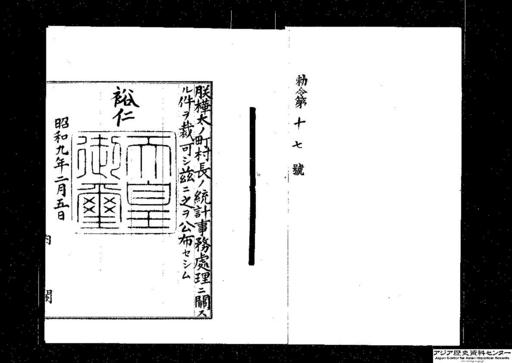 勅令第十七號
朕樺太ノ町村長ノ統計事務處理ニ關ス
ル件ヲ裁可シ茲ニ之ヲ公布セシム
裕仁
天皇御璽
昭和九年二月五日
内閣
アジア歴史資料センター
Japan Center for Asian Historical Records